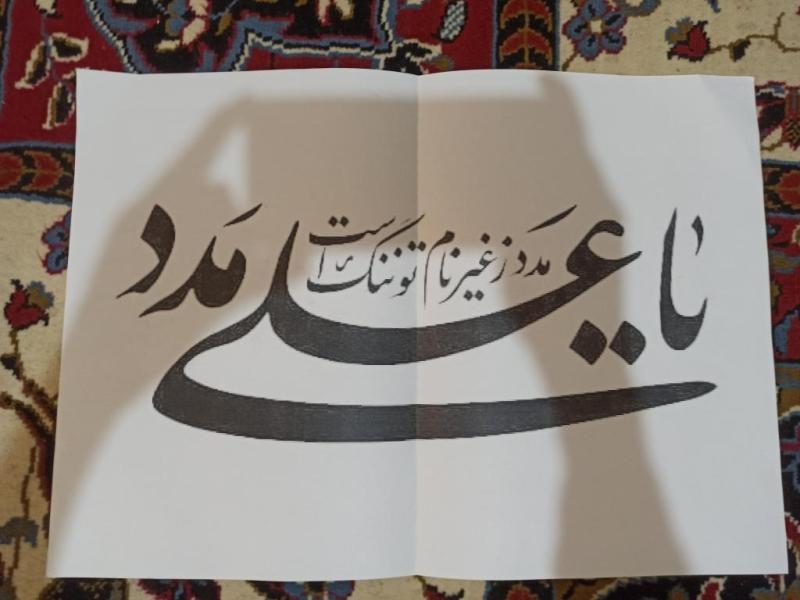 یا علی مدد
مدد ز غیر نام تو ننگ است